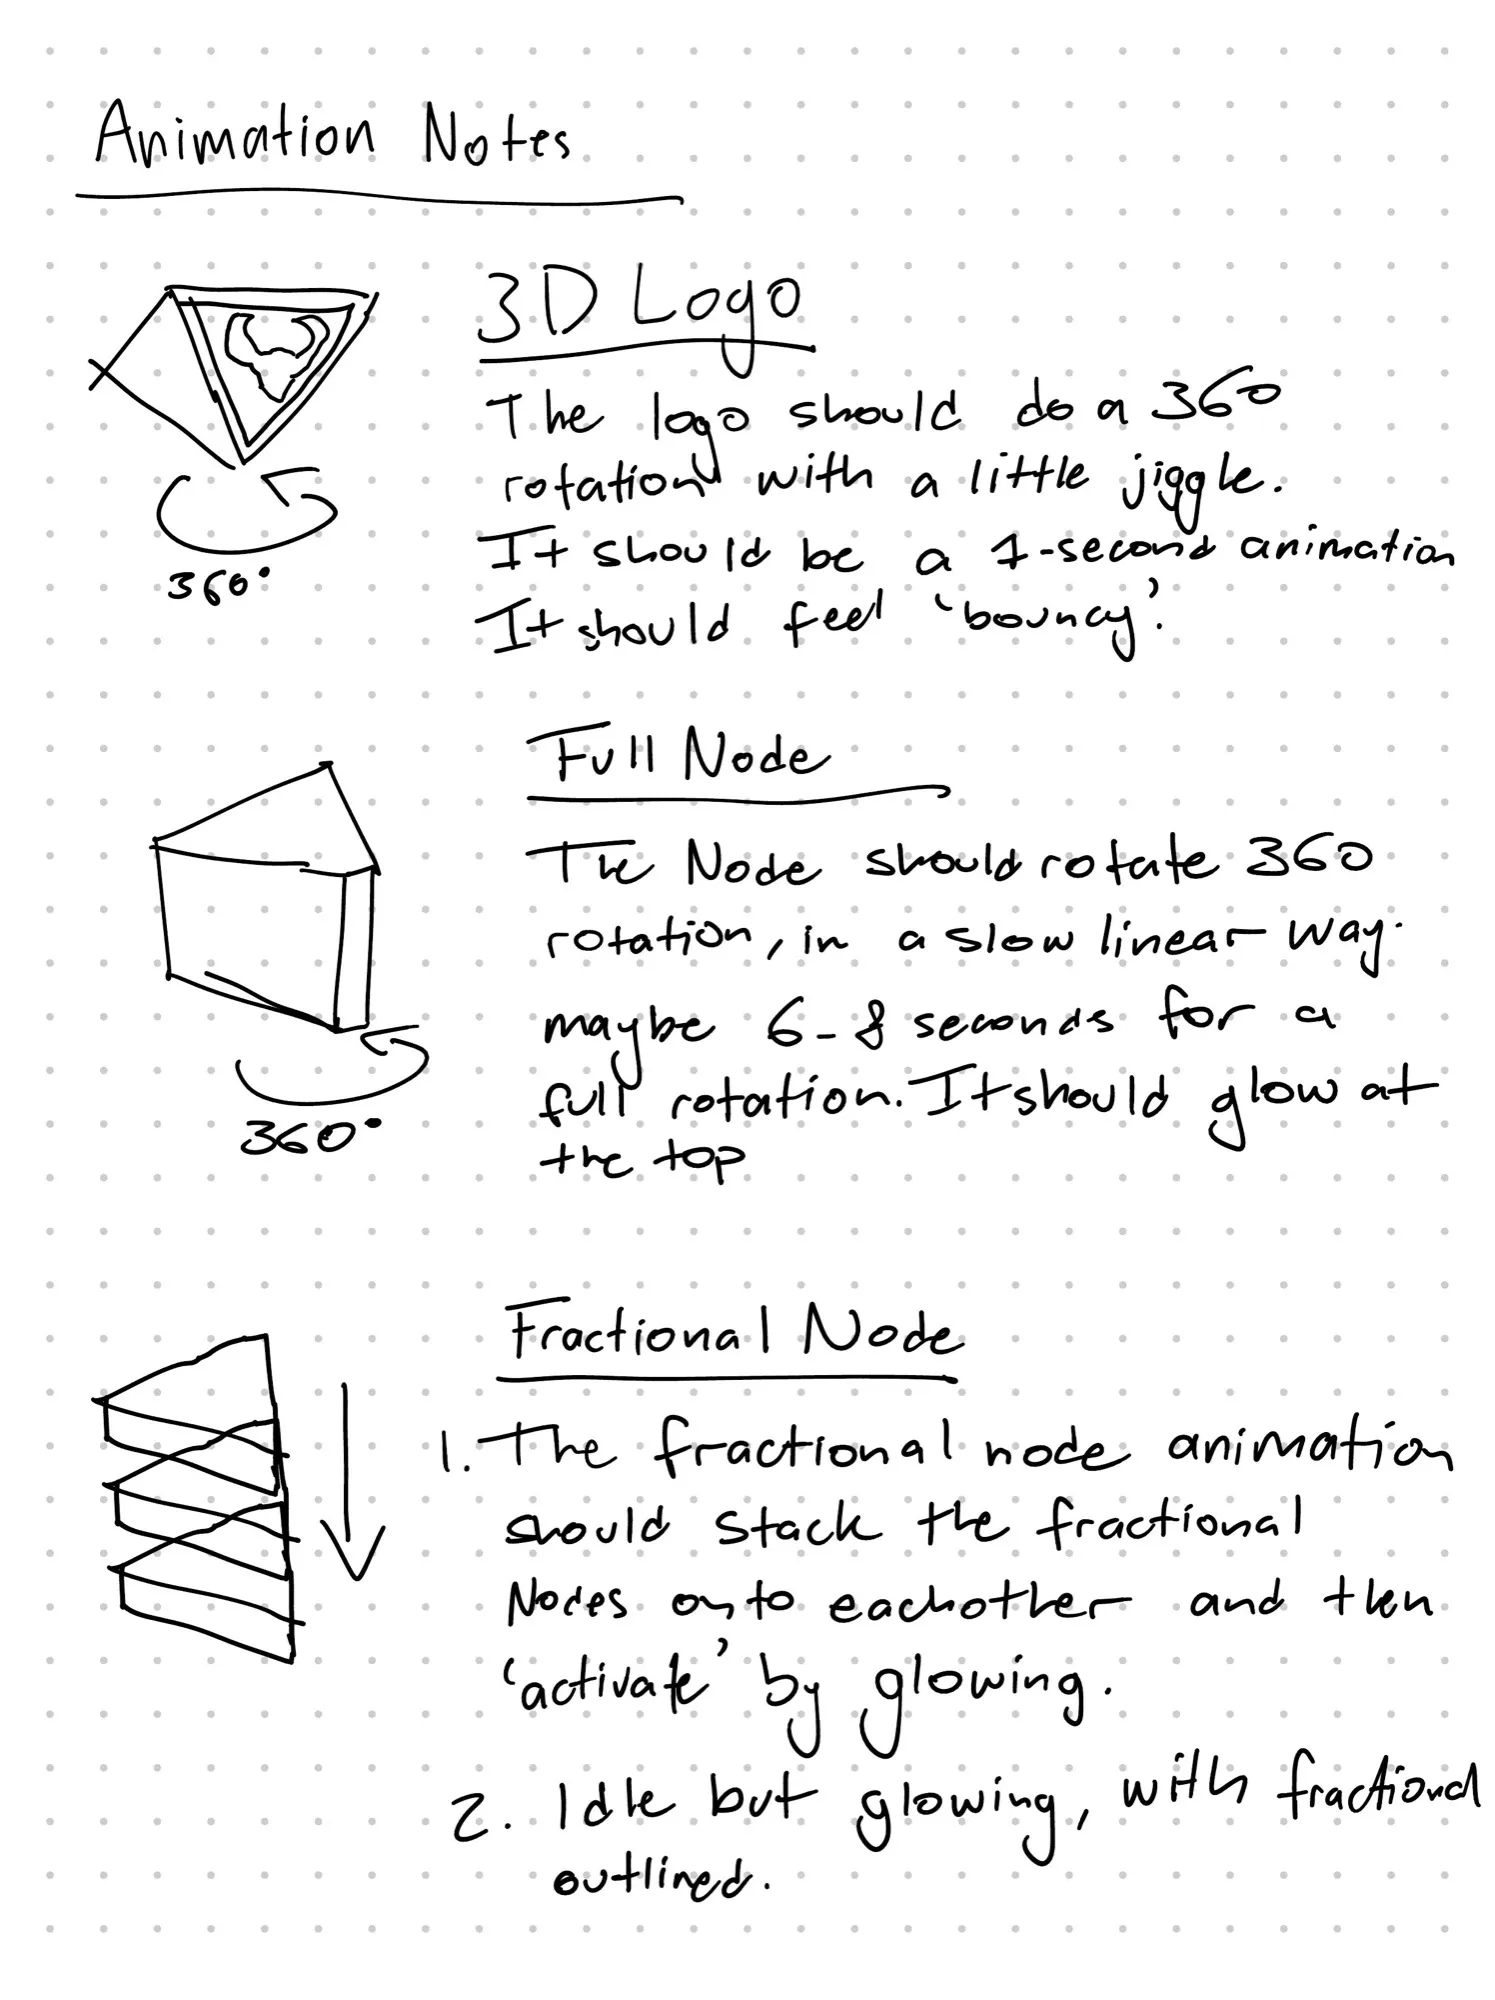 Animation Notes
3D Logo
The logo should do a 360
rotation with a little jiggle.
It should be a 1-second animation
It should feel 'bouncy'.
360°
Full Node
The Node should rotate 360
rotation, in a slow linear way.
maybe 6-8 seconds for a
full rotation. It should glow at
the top
360°
Fractional Node
1. The fractional node animation
should stack the fractional
Nodes onto eachother and then
'activate' by glowing.
2. Idle but glowing, with fractional
outlined.